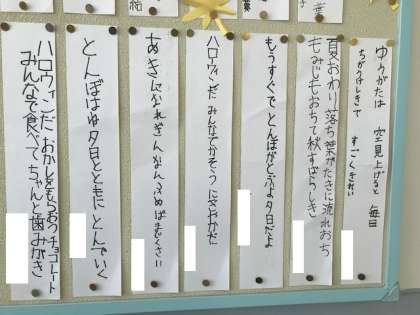 ゆうがたは 空見上げると 毎日
ちがうけしきで すごくきれい
夏おわり落ち葉がたきに流れおち
もみじもおちて秋すばらしき
もうすぐで とんぼがとぶよ夕日だよ
ハロウィンだ みんなでかそうにぎやかだ
あきになれぎんなんふめばまぐさい
とんぼはね夕日とともにとんでいく
ハロウィンだおかしをもらおうチョコレート
みんなで食べてちゃんと歯みがき